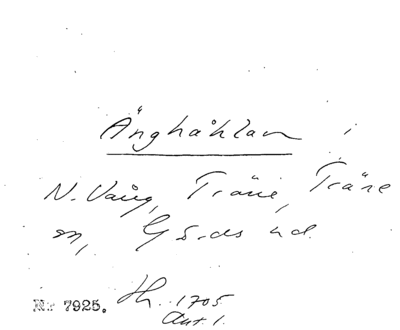 Änghåhlan i
N. Vång, Träne, Träne
sn, Gärds hd.
No 7925. Hh. 1705
Akt 1.